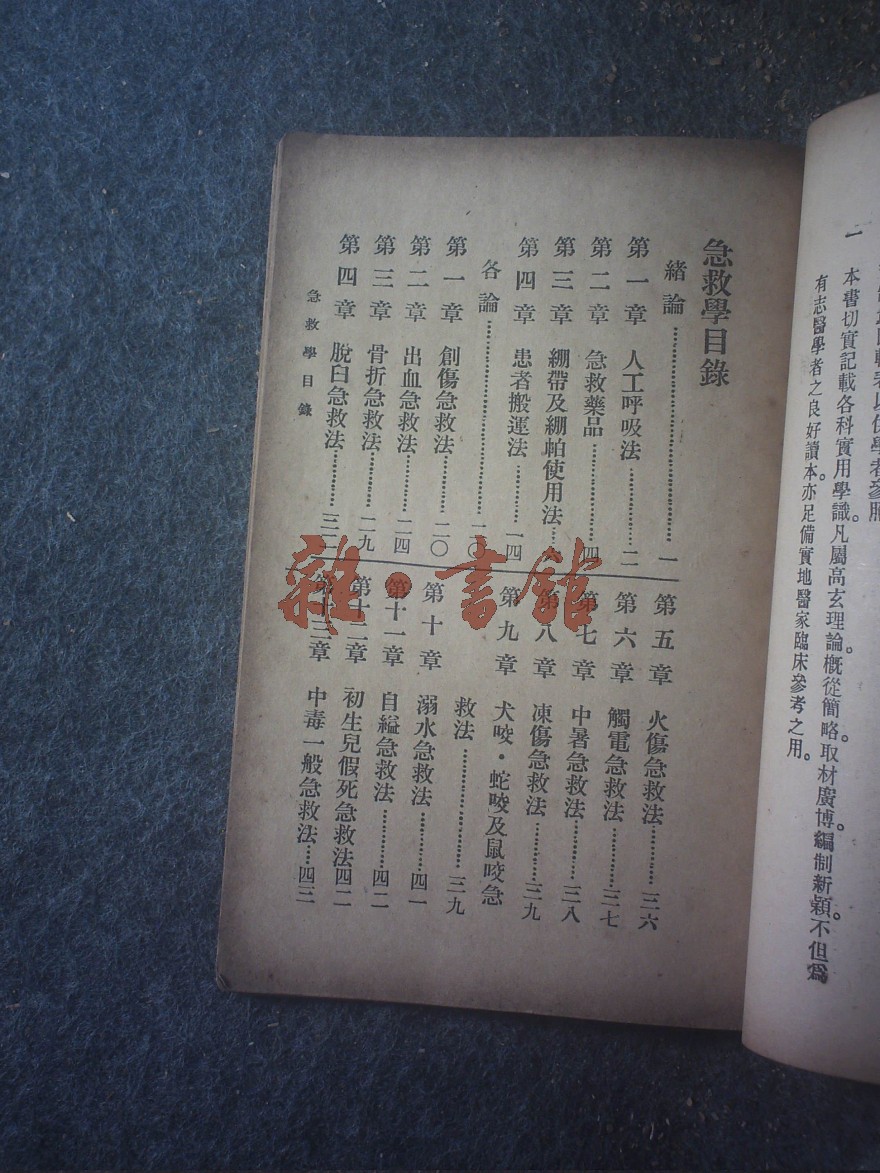 一　本書切實記載各科實用學識。凡屬高玄理論。概從簡略取材廣博。編制新穎。不但爲
有志醫學者之良好讀本。亦足備實地醫家臨床參考之用。
急救學目錄
緒論……一
第一章　人工呼吸法……二
第二章　急救藥品……四
第三章　綳帶及綳帕使用法…六
第四章　患者搬運法……一四
各論……二〇
第一章　創傷急救法……二〇
第二章　出血急救法……二四
第三章　骨折急救法……二九
第四章　脫臼急救法……三二
急救學目錄
第五章　火傷急救法……三六
第六章　觸電急救法……三七
第七章　中暑急救法……三八
第八章　凍傷急救法……三九
第九章　犬咬・蛇咬及鼠咬急
救法……三九
第十章　溺水急救法……四一
第十一章　自縊急救法……四二
第十二章　初生兒假死急救法四二
第十三章　中毒一般急救法…四三
雜・書館